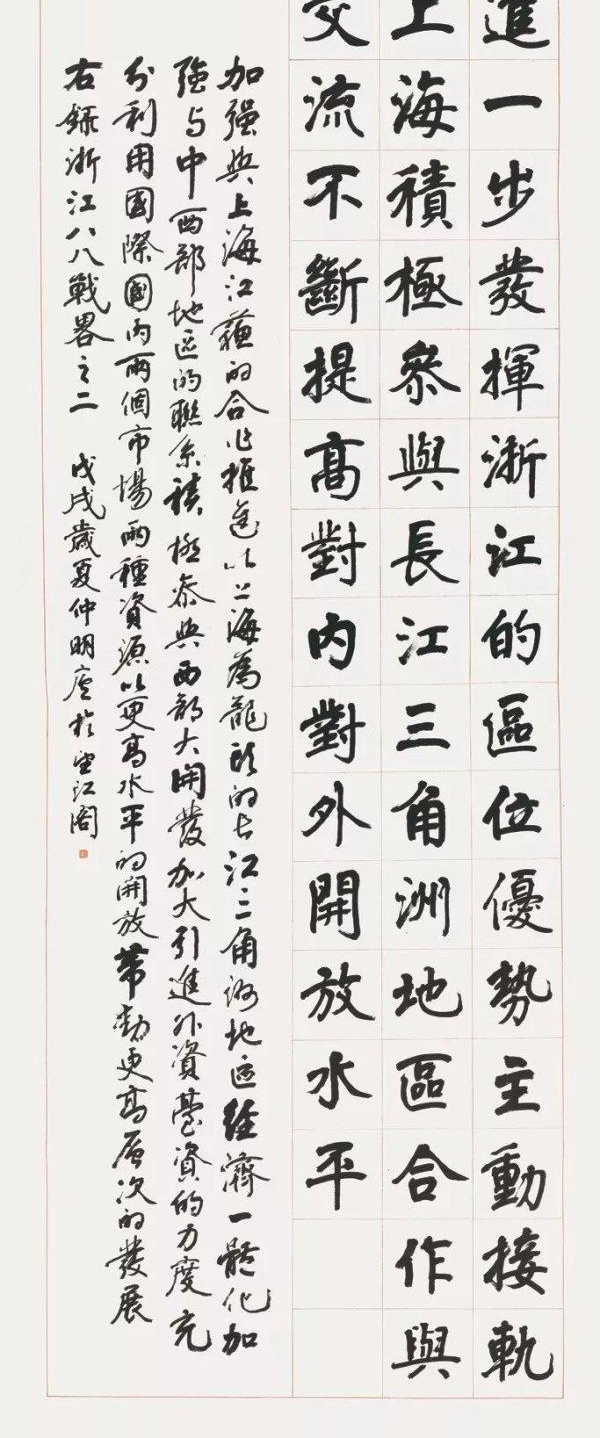 進一步發揮浙江的區位優勢主動接軌
上海積極參與長江三角洲地區合作與
交流不斷提高對内對外開放水平
加强與上海江蘇的合作推進以上海爲龍頭的長江三角洲地區經濟一體化加
强与中西部地区的聯系積極參與西部大開發加大引進外資臺資的力度充
分利用國際國内兩個市場兩種資源以更高水平的開放帶動更高層次的發展
右録浙江八八戰畧之二 戊戌歲夏仲明虚於望江閣